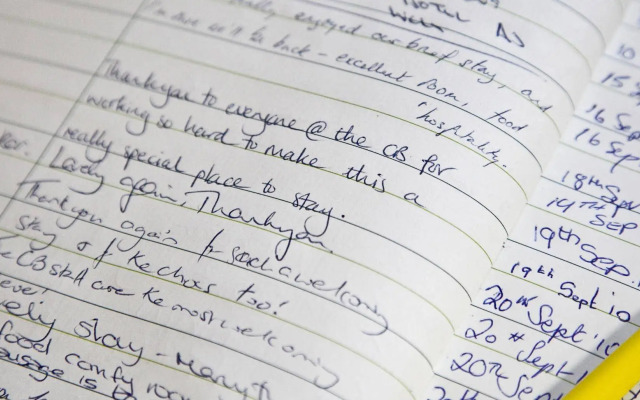 HOTEL AS
really enjoyed our brief stay, and
I'm sure we'll be back - excellent room, food
'hospitality.
Thankyou to everyone @ the CB for
working so hard to make this a
really special place to stay.
Lady again, Thankyou.
Thankyou again for such a welcoming
stay
too!
CB staff are the most welcoming
ever!
lovely stay -
food comfy room
sausage is
10
15
16 Sep
16 Sep
18th Sept
14TH SEP
19th Sep
19th Sept 10
20th Sept '10
20th Sept 1
20th Sep